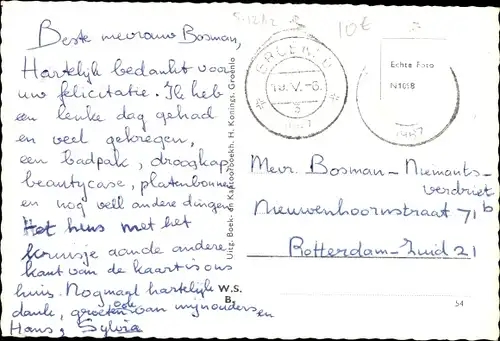 Beste mevrouw Bosman,
Hartelijk bedankt voor
uw felicitatie. Ik heb
een leuke dag gehad
en veel gekregen,
een badpak, droogkap,
beautycase, platenbonnen
en nog veel andere dingen
Het huis met het
kruisje aan de andere
kant van de kaart is ons
huis. Nogmaal hartelijk
dank, groeten ook van mijn ouders en
Hans, Sylvia
Uitg. Boek- en Kantoorboekh. H. Konings, Groenlo
W.S.
B.
10€
GROENLO
10.V.-6.
Echte Foto
N1058
1967
Mevr. Bosman - Niemants-
verdriet
Nieuwenhoornstraat 71 b
Rotterdam-Zuid 21
54